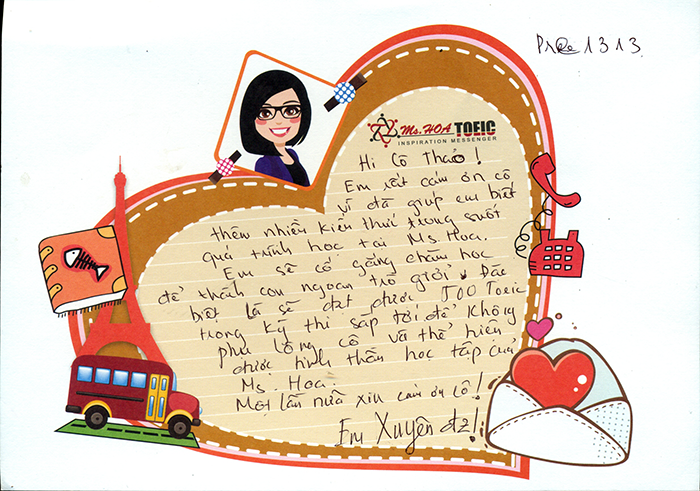 Pree 1313
Ms. HOA TOEIC
INSPIRATION MESSENGER
Hi Cô Thảo!
Em rất cảm ơn cô
vì đã giúp em biết
thêm nhiều kiến thức trong suốt
quá trình học tại Ms Hoa.
Em sẽ cố gắng chăm học
để thành con ngoan trò giỏi. Đặc
biệt là sẽ đạt được 700 Toeic
trong kỳ thi sắp tới để không
phụ lòng cô và thể hiện
được tinh thần học tập của
Ms. Hoa.
Một lần nữa xin cảm ơn cô!
Em Xuyên đz!